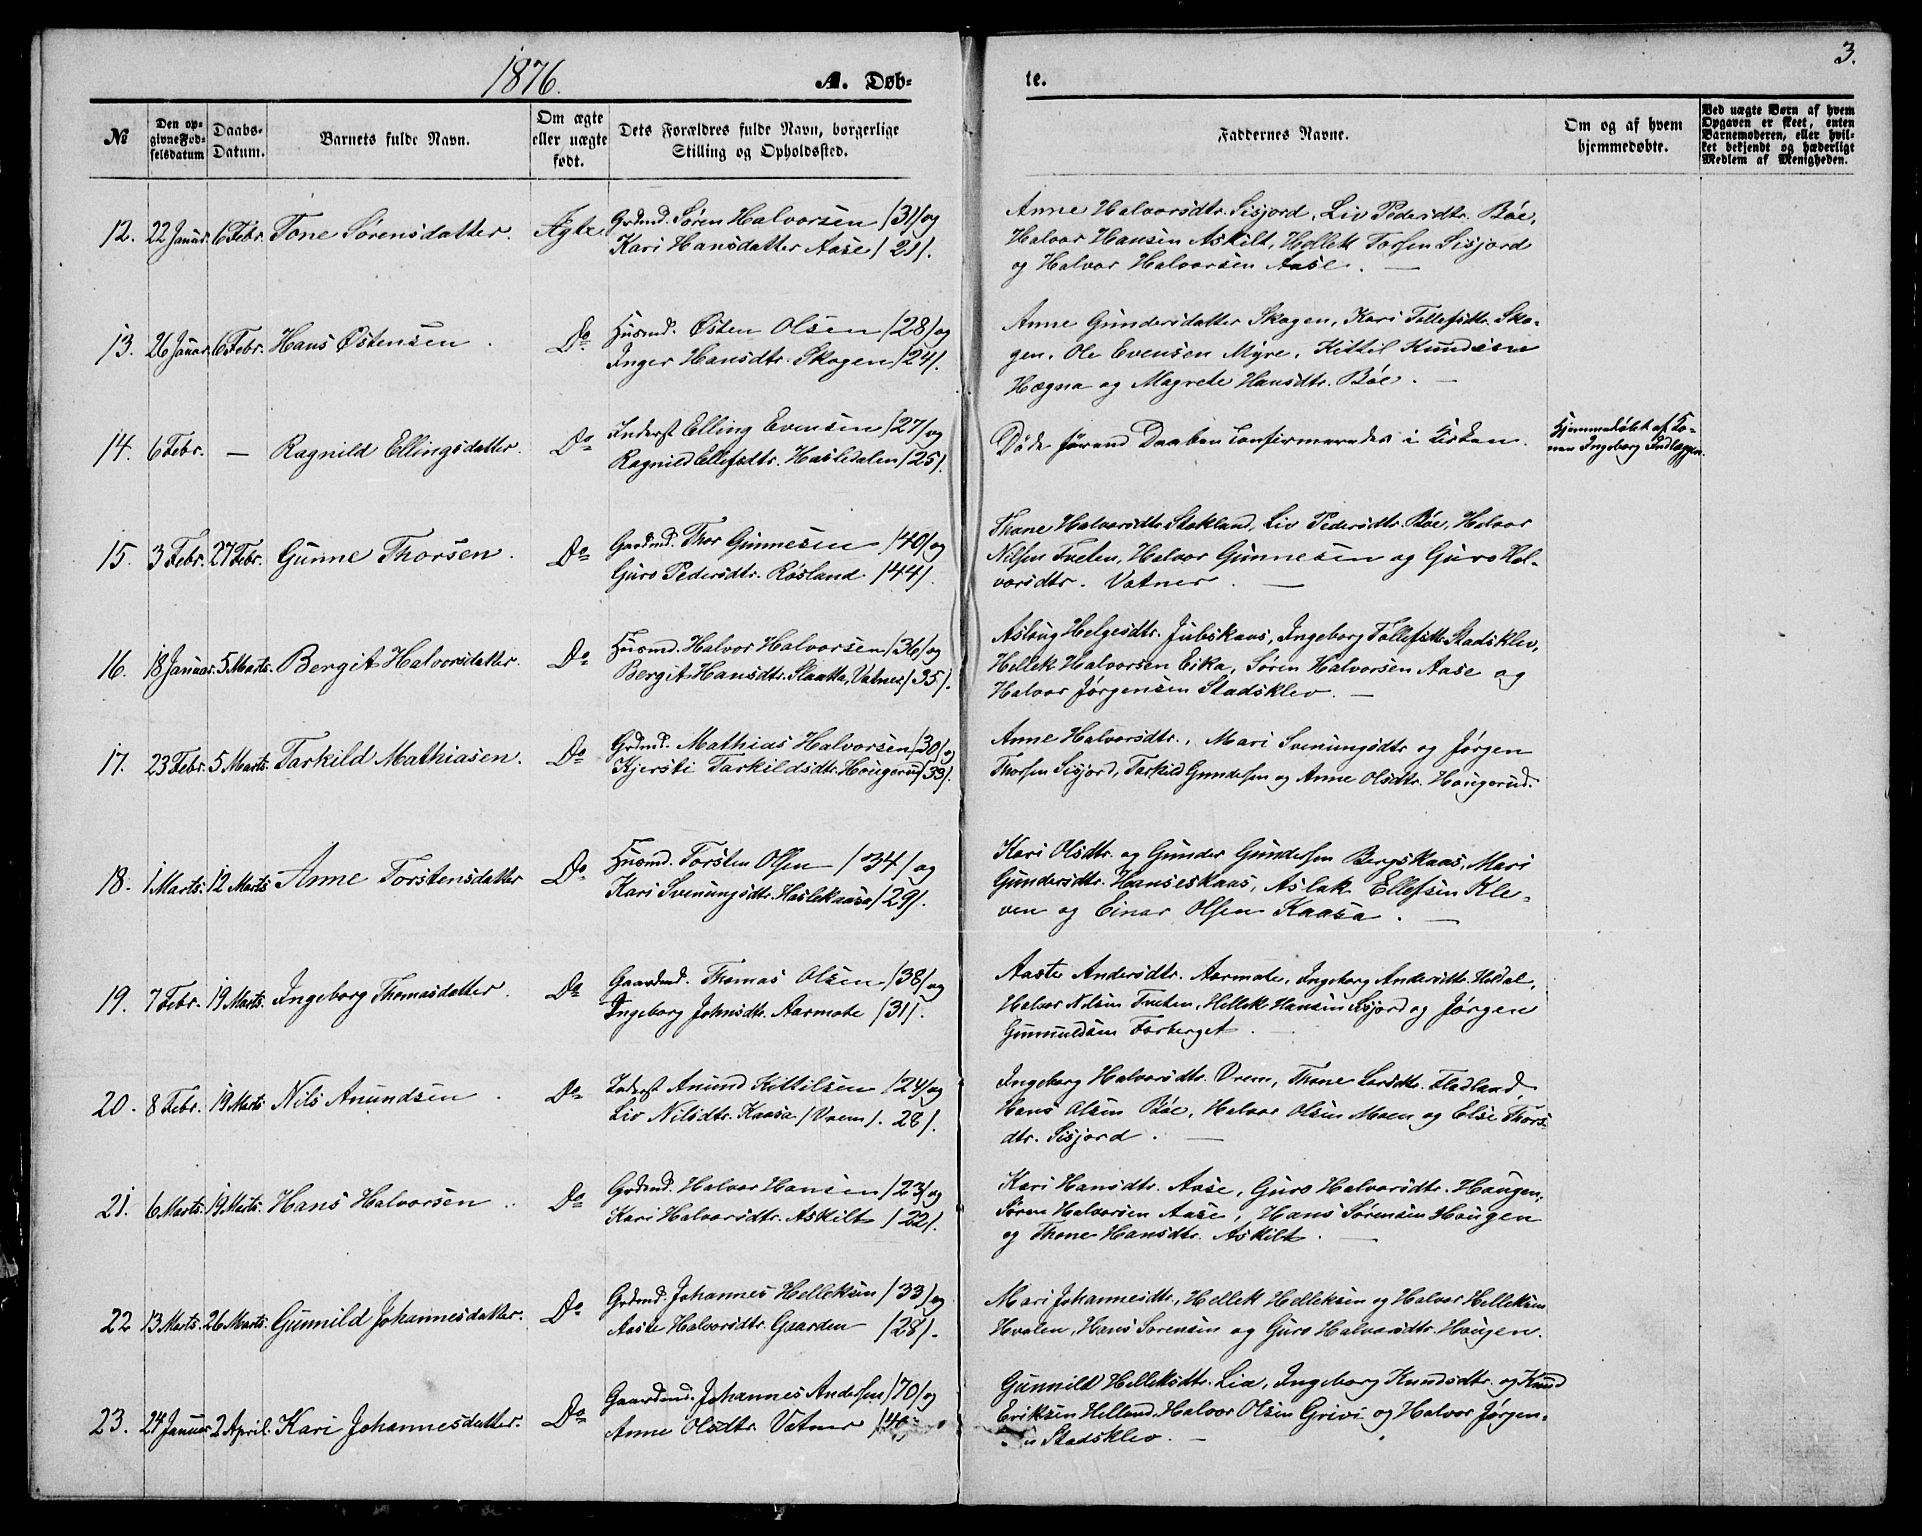 3.
1876.
A. Døb-
te.
No
Den op-
givne Fød-
selsdatum
Daabs-
Datum.
Barnets fulde Navn.
Om ægte
eller uægte
født.
Dets Forældres fulde Navn, borgerlige
Stilling og Opholdssted.
Faddernes Navne.
Om og af hvem
hjemmedøbte.
Ved uægte Børn af hvem
Opgaven er skeet, enten
Barnemoderen, eller hvil-
ket bekjendt og hæderligt
Medlem af Menigheden.
12. 22 Januar. 6 Febr. Tone Sørensdatter. Ægte
Grdmd. Søren Halvorsen /31/ og
Kari Hansdatter Aase /21/.
Anne Halvorsdtr. Sisjord, Liv Pedersdtr. Bøe,
Halvor Hansen Askilt, Hellek Torsen Sisjord
og Halvor Halvorsen Aase. —
13. 26 Januar. 6 Febr. Hans Østensen. Do
Husmd. Østen Olsen /28/ og
Inger Hansdtr. Skogen /24/.
Anne Gundersdatter Skogen, Kari Tollefsdtr. Sko-
gen, Ole Evensen Myre, Kittil Knudsen
Hægna og Magrete Hansdtr. Bøe. —
14. 6 Febr. — Ragnild Ellingsdatter. Do
Inderst Elling Evensen /27/ og
Ragnild Ellefsdtr. Hasledalen /25/.
Døde førend Daaben confirmeredes i Kirken.
Hjemmedøbt af Ko-
nen Ingeborg Indlæggen.
15. 3 Febr. 27 Febr. Gunne Thorsen. Do
Gaardmd. Thor Gunnesen /40/ og
Guro Pedersdtr. Røsland /44/.
Thone Halvorsdtr. Stokland, Liv Pedersdtr. Bøe, Halvor
Nilsen Tveten, Halvor Gunnesen og Guro Hal-
vorsdtr. Vatner. —
16. 18 Januar. 5 Marts. Bergit Halvorsdatter. Do
Husmd. Halvor Halvorsen /36/ og
Bergit Hansdtr. Slaatta, Vatnes /35/.
Aslaug Helgesdtr. Jubskaas, Ingeborg Tollefsdtr. Stadsklev,
Hellek Halvorsen Eika, Søren Halvorsen Aase og
Halvor Jørgensen Stadsklev. —
17. 23 Febr. 5 Marts. Tarkild Mathiasen. Do
Grdmd. Mathias Halvorsen /30/ og
Kjersti Tarkildsdtr. Hougerud /33/.
Anne Halvorsdtr., Mari Svenungsdtr og Jørgen
Thorsen Sisjord, Tarkild Gundersen og Anne Olsdtr. Hougerud.
18. 1 Marts. 12 Marts Anne Torstensdatter Do
Husmd. Torsten Olsen /34/ og
Kari Svenungsdtr. Haslekaasa /29/.
Kari Olsdtr. og Gunder Gundersen Bergskaas, Mari
Gundersdtr. Hanseskaas, Aslak Ellefsen Kle-
ven og Einar Olsen Kaasa. —
19. 7 Febr. 19 Marts. Ingeborg Thomasdatter. Do
Gaardmd. Thomas Olsen /38/ og
Ingeborg Johnsdtr. Aarmote /31/.
Aaste Andersdtr. Aarmote, Ingeborg Andersdtr. Heldal,
Halvor Nilsen Tveten, Hellek Hansen Sisjord og Jørgen
Gunnuldsen Forberget. —
20. 8 Febr. 19 Marts Nils Anundsen. Do
Inderst Anund Kittilsen /24/ og
Liv Nilsdtr. Kaasa /Vrem/. 28/.
Ingeborg Halvorsdtr. Vrem, Thone Larsdtr. Fladland,
Hans Olsen Bøe, Halvor Olsen Moen og Else Thors-
dtr. Sisjord. —
21. 6 Marts. 19 Marts. Hans Halvorsen. Do
Grdmd. Halvor Hansen /23/ og
Kari Halvorsdtr. Askilt /22/.
Kari Hansdtr. Aase, Guro Halvorsdtr. Haugen,
Søren Halvorsen Aase, Hans Sørensen Hougen
og Thone Hansdtr. Askilt. —
22 13 Marts. 26 Marts. Gunnild Johannesdatter. Do
Grdmd. Johannes Helleksen /33/ og
Aaste Halvorsdtr. Gaarden /28/.
Mari Johannesdtr., Hellek Helleksen og Halvor Helleksen
Hvalen, Hans Sørensen og Guro Halvorsdtr. Hougen.
23. 24 Januar 2 April. Kari Johannesdatter. Do
Gaardmd. Johannes Andersen /70/ og
Anne Olsdtr. Vatner
Gunnild Helleksdtr. Lia, Ingeborg Knudsdtr. og Knud
Eriksen Helland, Halvor Olsen Grivi og Halvor Jørgen-
Stadsklev. —